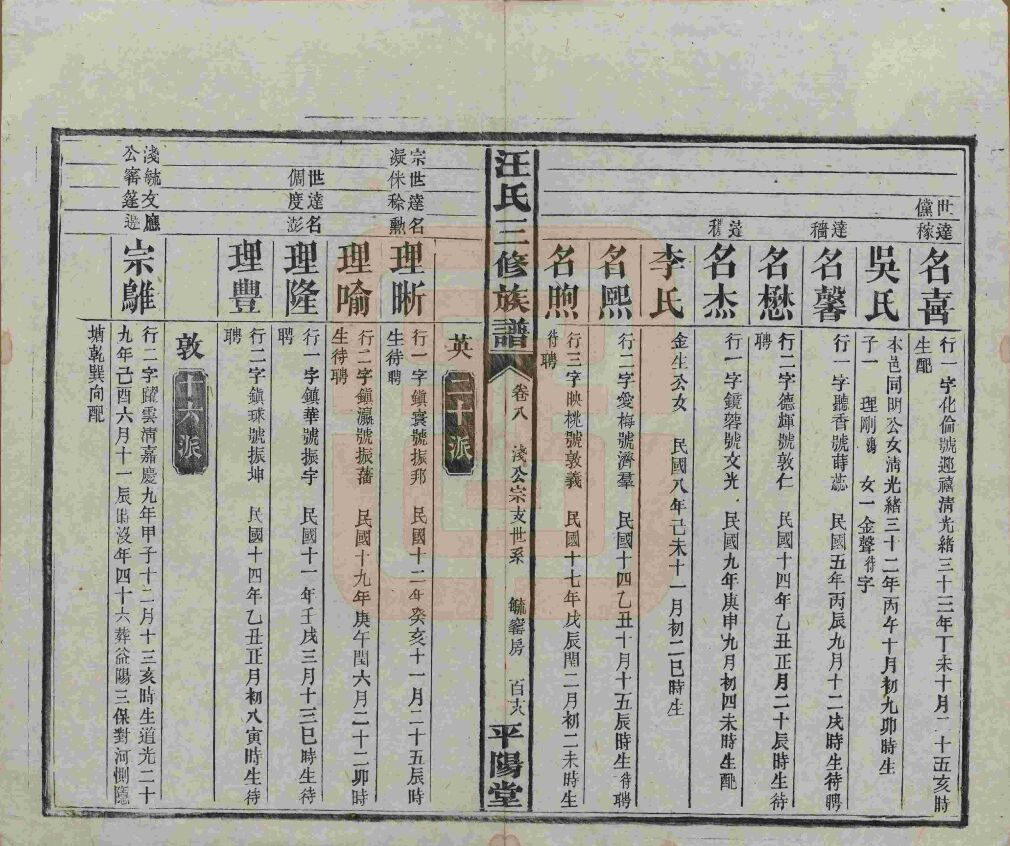 世達
儻稼
名喜
行一字化倫號遜禧清光緒三十三年丁未十月二十五亥時
生配
吳氏
本邑同明公女清光緒三十二年丙午十月初九卯時生
子一 理剛鶚 女一金聲待字
達
穡
名馨
行一字聽香號蒔蕊 民國五年丙辰九月十二戌時生待聘
名懋
行二字德輝號敦仁 民國十四年乙丑正月二十辰時生待
聘
達
穜
名杰
行一字鏡蓉號文光 民國九年庚申九月初四未時生配
李氏
金生公女 民國八年己未十一月初二巳時生
名熙
行二字愛梅號濟羣 民國十四乙丑十月十五辰時生待聘
名煦
行三字映桃號敦義 民國十七年戊辰閏二月初二未時生
待聘
汪氏三修族譜
卷八 淺公宗支世系 毓窰房 百六
平陽堂
英 二十派
宗世達名
凝侏稌勳
理晰
行一字鎮寰號振邦 民國十二年癸亥十一月二十五辰時
生待聘
理喻
行二字鎮瀛號振藩 民國十九年庚午閏六月二十二卯時
生待聘
世達名
倜度彭
理隆
行一字鎮華號振宇 民國十一年壬戌三月十三巳時生待
聘
理豐
行二字鎮球號振坤 民國十四年乙丑正月初八寅時生待
聘
敦 十六派
淺毓友應
公窰蓬選
宗雝
行二字躍雲清嘉慶九年甲子十二月十三亥時生道光二十
九年己酉六月十一辰時沒年四十六葬益陽三保對河惻隱
塘乾巽向配